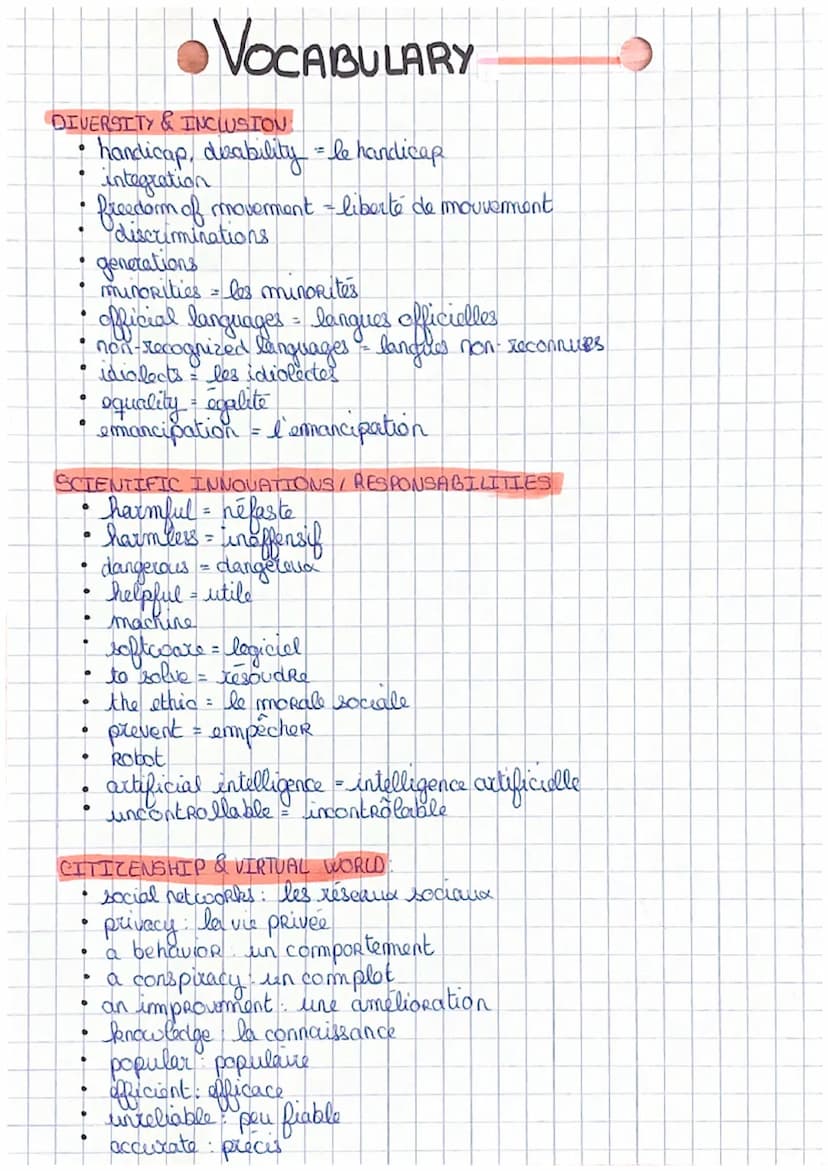 VOCABULARY
DIVERSITY & INCLUSION:
• handicap, disability = le handicap
• integration
• freedom of movement = liberté de mouvement
• discriminations
• generations
• minorities = les minorités
• official languages = langues officielles
• non-recognized languages = langues non-reconnues
• idiolects = les idiolectes
• equality = égalité
• emancipation = l'emancipation
SCIENTIFIC INNOVATIONS / RESPONSABILITIES
• harmful = néfaste
• harmless = inoffensif
• dangerous = dangereux
• helpful = utile
• machine
• software = logiciel
• to solve = résoudre
• the ethic = le morale sociale
• prevent = empêcher
• Robot
• artificial intelligence = intelligence artificielle
• uncontrollable = incontrôlable
CITIZENSHIP & VIRTUAL WORLD:
• social networks : les réseaux sociaux
• privacy : la vie privée
• a behavior : un comportement
• a conspiracy : un complot
• an improvement : une amélioration
• knowledge : la connaissance
• popular : populaire
• efficient : efficace
• unreliable : peu fiable
• accurate : précis